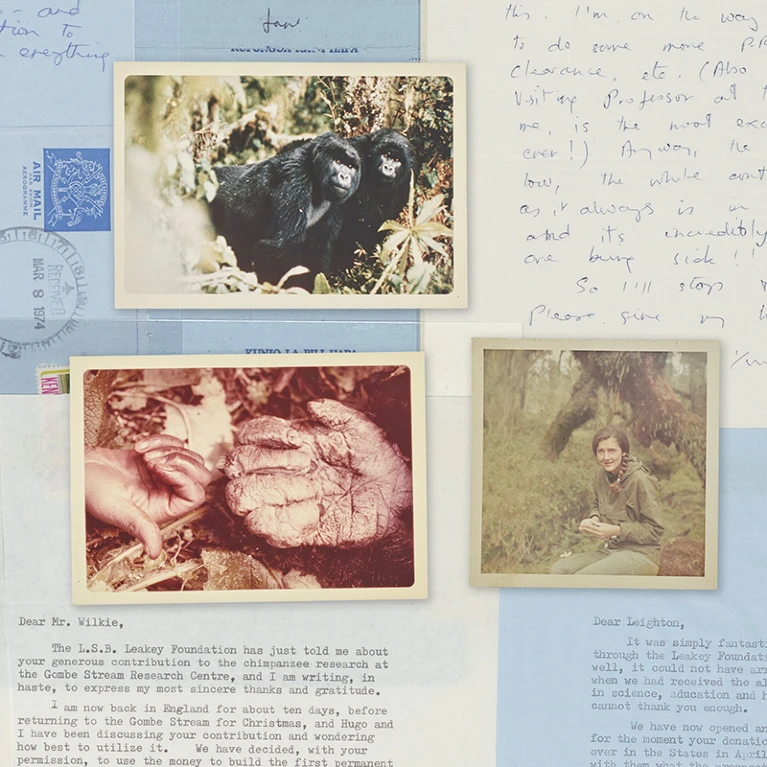 - and
tion to
everything
Jane
AIR MAIL
PAR AVION
AEROGRAMME
RECEIVED
MAR 8 1974
KEN
this. I'm on the way
to do some more P.R.
Clearance, etc. (Also
Visiting Professor at
me, is the most exc
ever!) Anyway, the
low, the whole cont
as it always is in
and its incredibly
are being sick!!
So I'll stop
Please give my
Dear Mr. Wilkie,
The L.S.B. Leakey Foundation has just told me about
your generous contribution to the chimpanzee research at
the Gombe Stream Research Centre, and I am writing, in
haste, to express my most sincere thanks and gratitude.
I am now back in England for about ten days, before
returning to the Gombe Stream for Christmas, and Hugo and
I have been discussing your contribution and wondering
how best to utilize it. We have decided, with your
permission, to use the money to build the first permanent
Dear Leighton,
It was simply fantasti
through the Leakey Foundati
well, it could not have arr
when we had received the al
in science, aducation and h
cannot thank you enough.
We have now opened an
for the moment your donatio
over in the States in April
with them what the